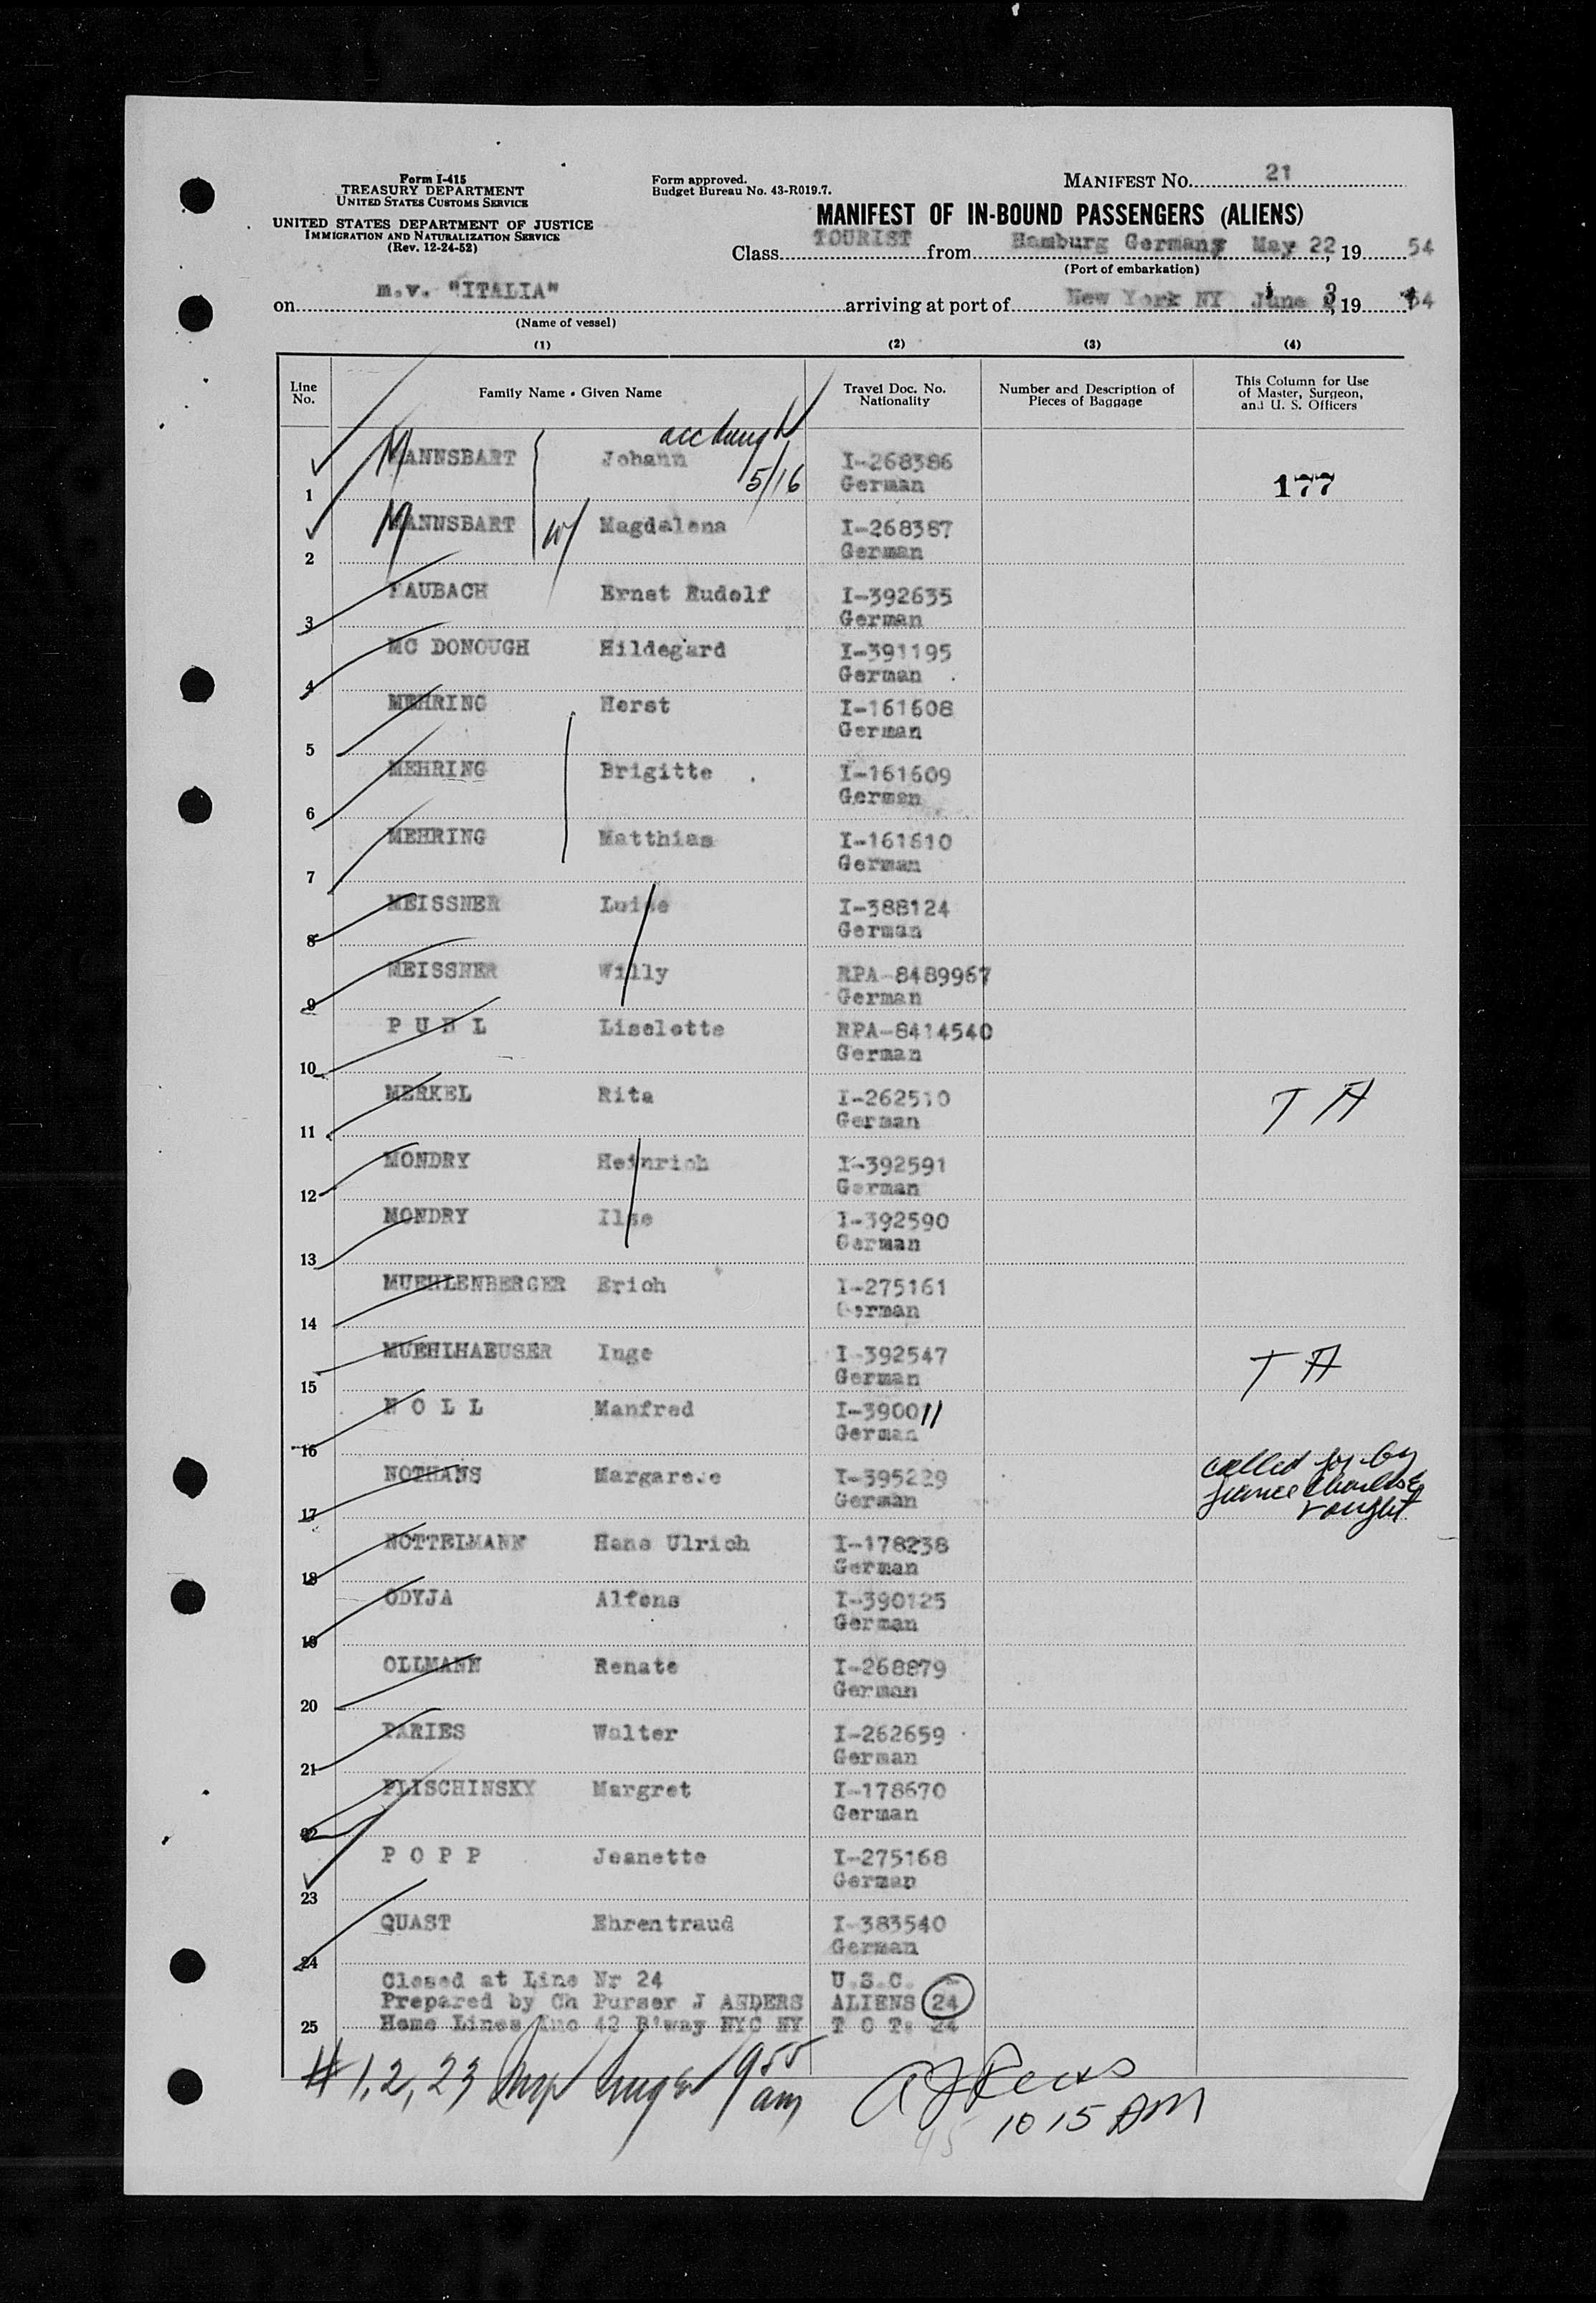 Form I-415
TREASURY DEPARTMENT
UNITED STATES CUSTOMS SERVICE
UNITED STATES DEPARTMENT OF JUSTICE
IMMIGRATION AND NATURALIZATION SERVICE
(Rev. 12-24-52)
Form approved.
Budget Bureau No. 43-R019.7.
MANIFEST NO. 21
MANIFEST OF IN-BOUND PASSENGERS (ALIENS)
Class TOURIST from Hamburg Germany May 22, 19 54
(Port of embarkation)
on m.v. "ITALIA" arriving at port of New York NY June 3, 19 54
(Name of vessel)
(1) (2) (3) (4)
Line No. Family Name • Given Name Travel Doc. No. Nationality Number and Description of Pieces of Baggage This Column for Use of Master, Surgeon, and U. S. Officers
acc
1 MANNSBART Johann 5/16 I-268386 German 177
2 MANNSBART w/ Magdalena I-268387 German
3 Ernst Rudolf I-392635 German
4 MC DONOUGH Hildegard I-391195 German
5 MEHRING Horst I-161608 German
6 MEHRING Brigitte I-161609 German
7 MEHRING Matthias I-161610 German
8 MEISSNER Luise I-388124 German
9 MEISSNER Willy RPA-8489967 German
10 P U H L Liselotte RPA-8414540 German
11 MERKEL Rita I-262510 German T A
12 MONDRY Heinrich I-392591 German
13 MONDRY Ilse I-392590 German
14 MUEHLENBERGER Erich I-275161 German
15 MUEHLHAEUSER Inge I-392547 German T A
16 N O L L Manfred I-390011 German
17 NOTHANS Margarete I-395229 German called for by fiance Charles
18 NOTTELMANN Hans Ulrich I-178238 German
19 ODYJA Alfons I-390125 German
20 OLLMANN Renate I-268879 German
21 PARIES Walter I-262659 German
22 PLISCHINSKY Margret I-178670 German
23 P O P P Jeanette I-275168 German
24 QUAST Ehrentraud I-383540 German
Closed at Line Nr 24 U.S.C. -
Prepared by Ch Purser J ANDERS ALIENS 24
25 Home Lines Inc 42 B'way NYC NY T O T: 24
# 1, 2, 23 9 55 am
10 15 AM